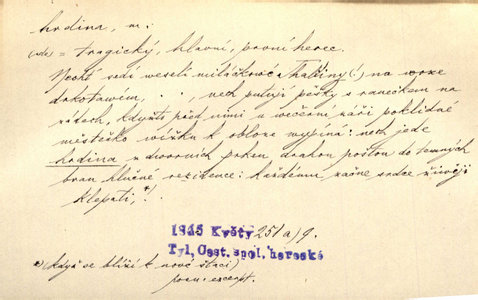 hrdina, m:
(zde) = tragický, hlavní, první herec.
Nechť sedí veselí miláčkové Thaliiny (!) na voze
drkotawém, . . , nech putují pěšky s ranečkem na
zádech, kdyžtě před nimi u wečerní záři poklidné
městečko wížku k obloze wypíná: nech jede
hrdina z dworních prken drahou poštou do temných
bran hlučné residence: každému začne srdce žiwěji
klepati, *)!
1845 Květy 251 a) 9.
Tyl, Cest. spol. herecké
*) (když se blíží k nové štaci)
pozn: excerpt.